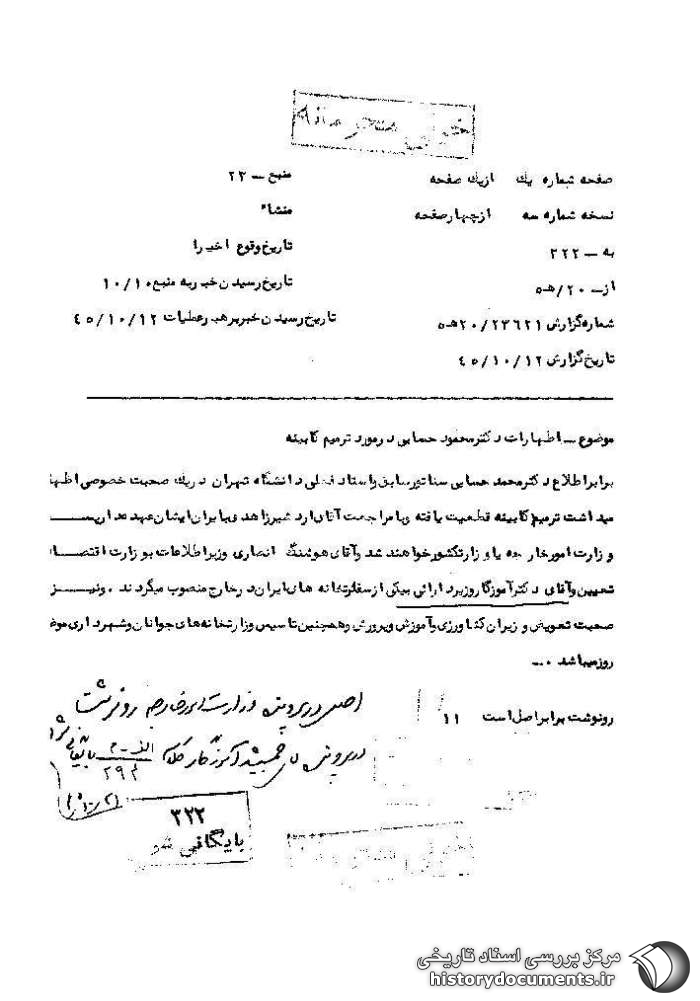 خیلی محرمانه
صفحه شماره یك از یك صفحه
منبع ــ ۲۳
نسخه شماره سه از چهار صفحه
منشاء
به ــ ۳۲۲
تاریخ وقوع اخیرا
از ــ ۲۰/هـ۵
تاریخ رسیدن خبر به منبع ۱۰/۱۰
شماره گزارش ۲۰/۲۳۶۲۱هـ۵
تاریخ رسیدن خبر برهبر عملیات ۴۵/۱۰/۱۲
تاریخ گزارش ۴۵/۱۰/۱۲
موضوع ــ اظهارات دکتر محمود حسابی در مورد ترمیم کابینه
برابر اطلاع دکتر محمد حسابی سناتور سابق و استاد فعلی دانشگاه تهران در یك صحبت خصوصی اظها
میداشت ترمیم کابینه قطعیت یافته و با مراجعت آقای اردشیر زاهدی بایران ایشان عهده دار پســـ
وزارت امور خارجه یا وزارتکشور خواهند شد و آقای هوشنگ انصاری وزیر اطلاعات بوزارت اقتصــا
تعیین و آقای دکتر آموزگار وزیر دارائی بیکی از سفارتخانه های ایران در خارج منصوب میگردند . و نیــز
صحبت تعویض وزیران کشاورزی و آموزش و پرورش و همچنین تاسیس وزارتخانه های جوانان و شهرداری موض
روز میباشد ...
رونوشت برابر اصل است ۱۱
اصل در پرونده وزارت امور خارجه رونوشت
در پرونده جمشید آموزگار کلاسه الف ــ م بایگانی شود
۲۹۳
۳۲۲
بایگانی شود
خیلی محرمانه
مرکز بررسی اسناد تاریخی
historydocuments.ir